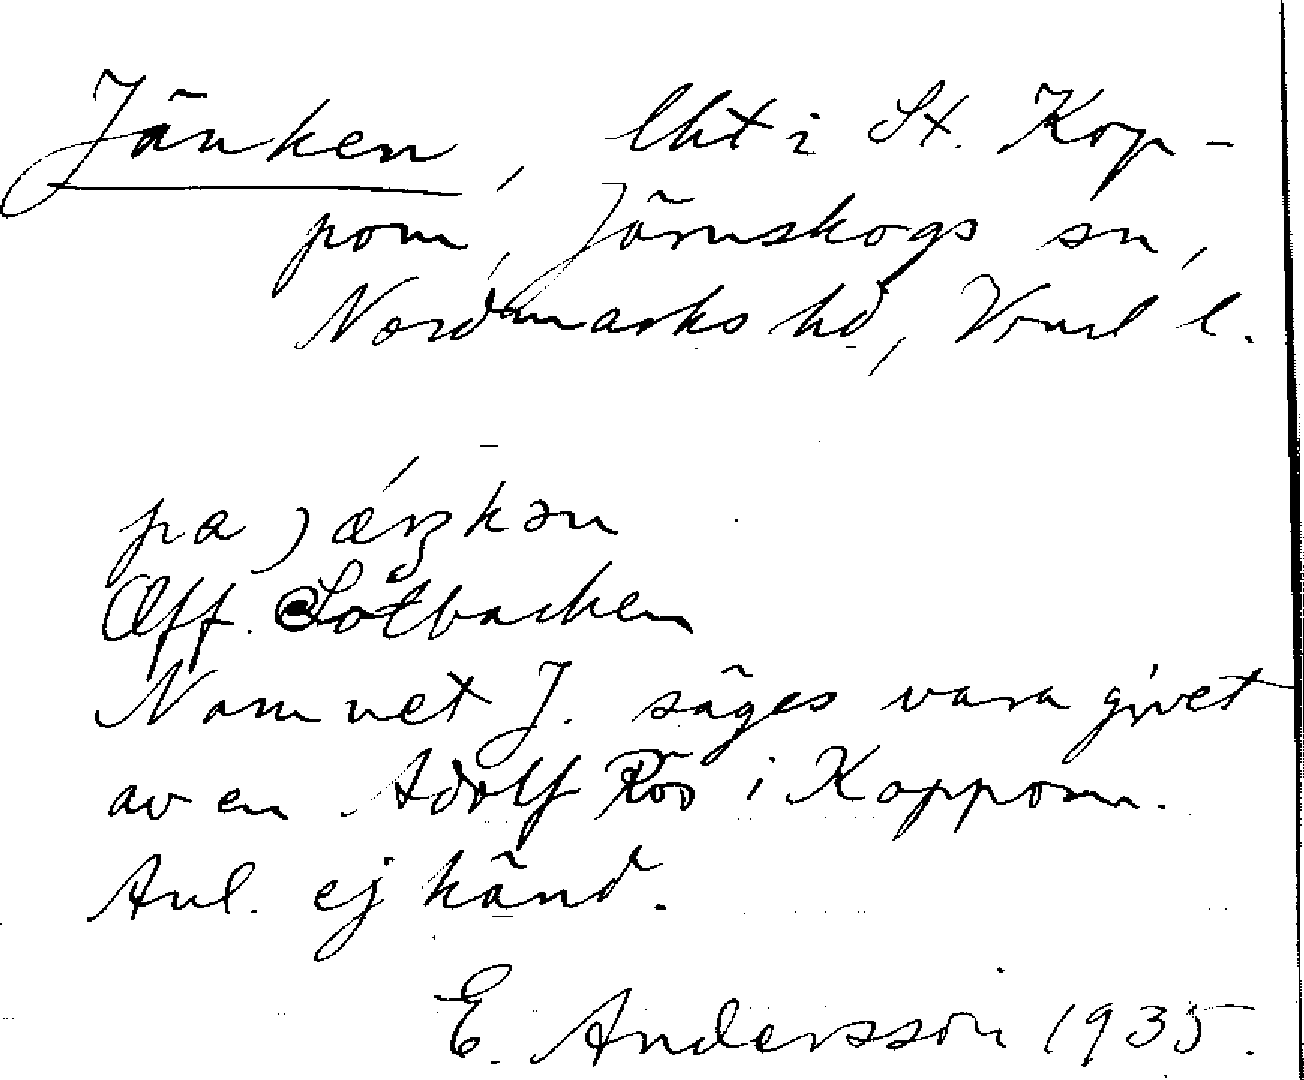 Jänken, lht i St. Kop-
pom, Järnskogs sn,
Nordmarks hd, Vrml l.
pa jǽŋkən
Off. Slottbacken
Namnet J. säges vara givet
av en Adolf Rös i Koppom.
Anl. ej känd.
E. Andersson 1935.